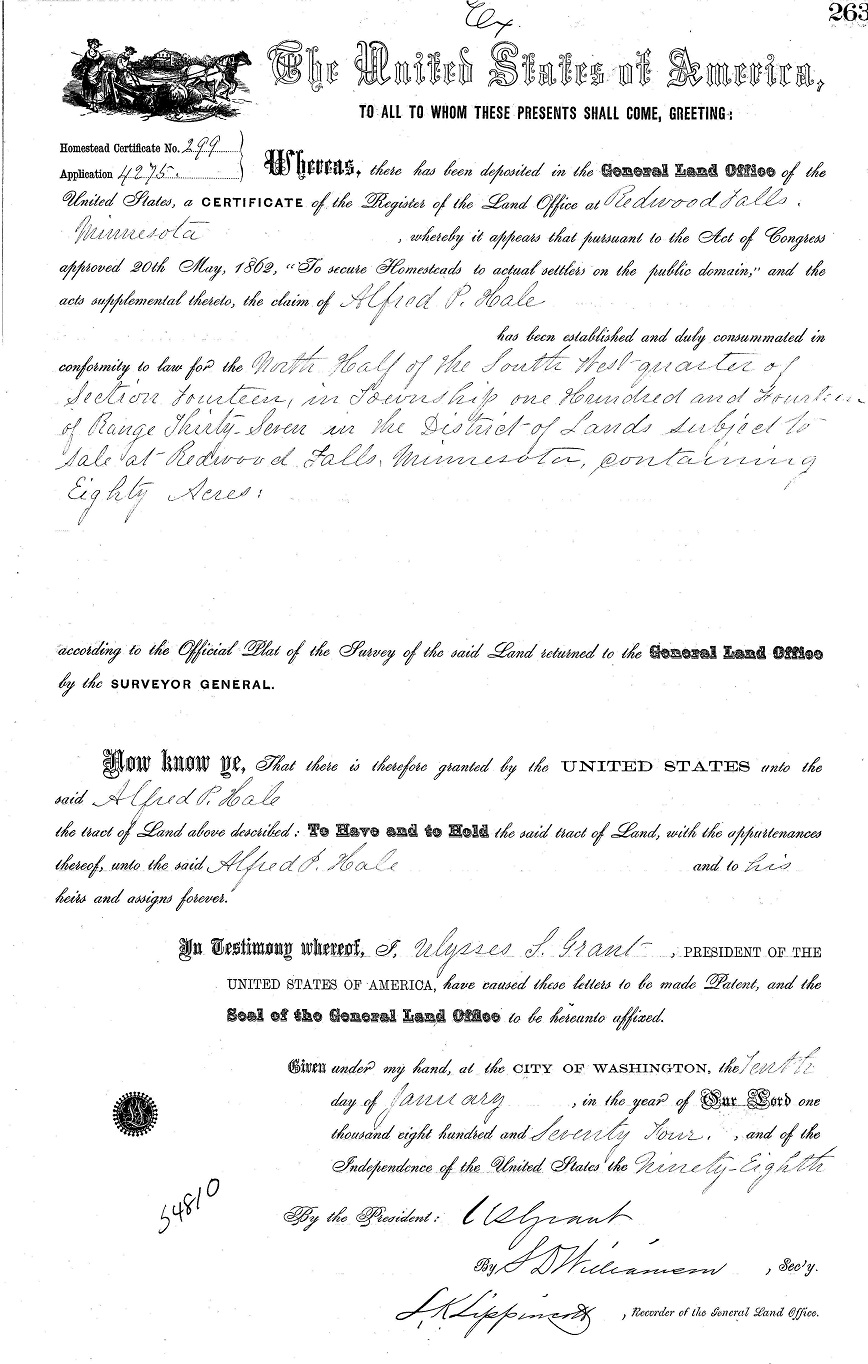 Ex.
263
The United States of America,
TO ALL TO WHOM THESE PRESENTS SHALL COME, GREETING:
Homestead Certificate No. 299
Application 4275.
Whereas, there has been deposited in the General Land Office of the
United States, a CERTIFICATE of the Register of the Land Office at Redwood Falls.
Minnesota , whereby it appears that pursuant to the Act of Congress
approved 20th May, 1862, "To secure Homesteads to actual settlers on the public domain," and the
acts supplemental thereto, the claim of Alfred P. Hale
has been established and duly consummated in
conformity to law for the North Half of the South West quarter of
Section Fourteen, in Township one Hundred and Fourteen
of Range Thirty-Seven in the District of Lands subject to
sale at Redwood Falls, Minnesota, containing
Eighty Acres:
according to the Official Plat of the Survey of the said Land returned to the General Land Office
by the SURVEYOR GENERAL.
Now know ye, That there is therefore granted by the UNITED STATES unto the
said Alfred P. Hale
the tract of Land above described: To Have and to Hold the said tract of Land, with the appurtenances
thereof, unto the said Alfred P. Hale and to his
heirs and assigns forever.
In Testimony whereof, I, Ulysses S. Grant , PRESIDENT OF THE
UNITED STATES OF AMERICA, have caused these letters to be made Patent, and the
Seal of the General Land Office to be hereunto affixed.
Given under my hand, at the CITY OF WASHINGTON, the Tenth
day of January , in the year of Our Lord one
thousand eight hundred and Seventy Four. , and of the
Independence of the United States the Ninety-Eighth
54810
By the President: U S Grant
By S D Williamson , Sec'y.
L K Lippincott , Recorder of the General Land Office.